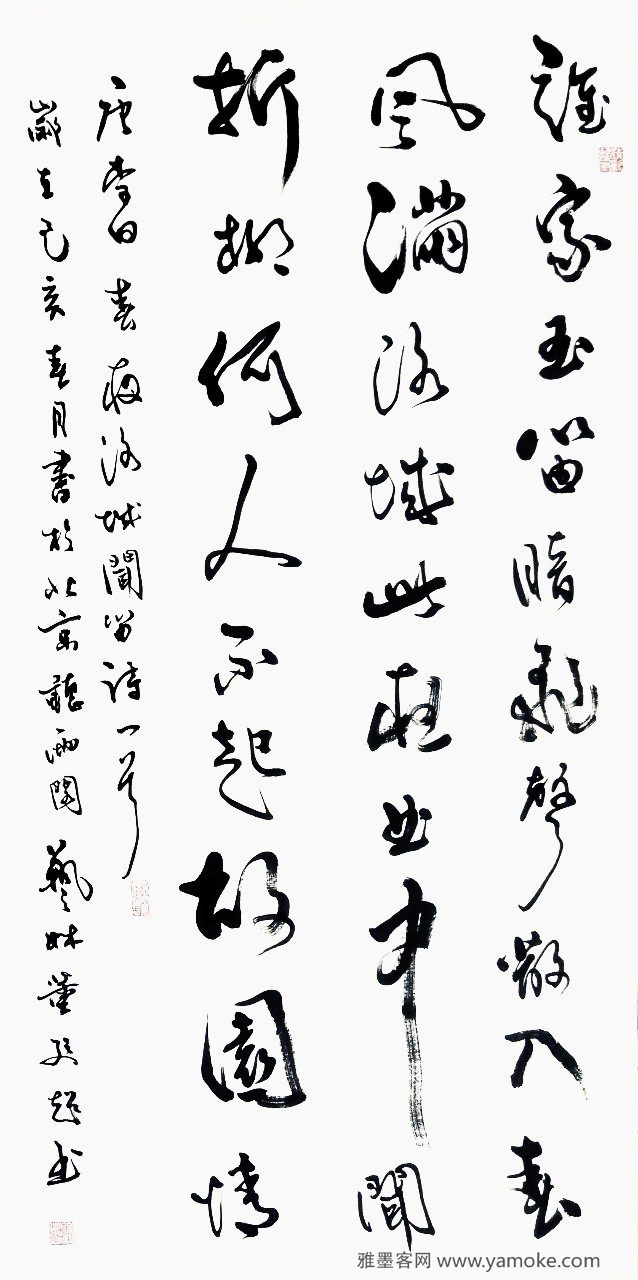 誰家玉笛暗飛聲散入春
風滿洛城此夜曲中聞
折柳何人不起故園情
唐李白春夜洛城聞笛詩一首
歲在己亥春月書於北京聽雨閣藝林董超书
雅墨客网 www.yamoke.com